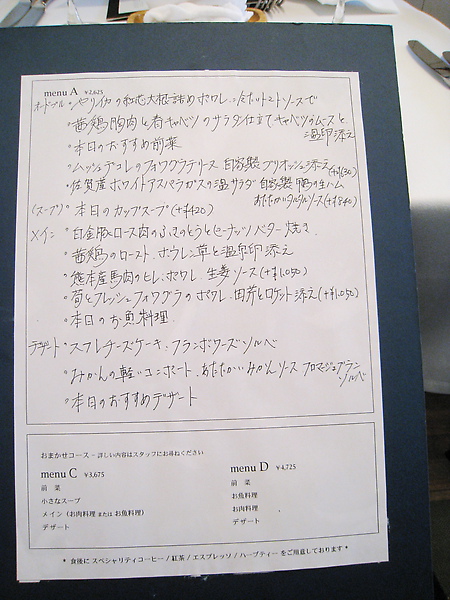 menu A ￥2,625
オードブル・ヤリイカの 大根詰め ポワレ トマトソースで
・茜鶏胸肉と春キャベツのサラダ仕立て キャベツのムースと
温卵添え
・本日のおすすめ前菜
・ムッシュテコレのフォワグラテリーヌ 自家製ブリオッシュ添え(+￥630)
・佐賀産ホワイトアスパラガスの温サラダ 自家製 鴨の生ハム
あたたかいタルタルソース(+￥840)
(スープ)・本日のカップスープ(+￥420)
メイン・白金豚ロース肉のふきのとうとピーナッツバター焼き
・茜鶏のロースト ホウレン草と温泉卵添え
・熊本産馬肉のヒレ、ポワレ 生姜ソース(+￥1,050)
・筍とフレッシュフォワグラのポワレ 田芹とロケット添え(+￥1,050)
・本日のお魚料理
デザート・スフレチーズケーキ、フランボワーズソルベ
・みかんの軽いコンポート、あたたかいみかんソース フロマージュブラン
ソルベ
・本日のおすすめデザート
おまかせコース －詳しい内容はスタッフにお尋ねください
menu C ￥3,675
前 菜
小さなスープ
メイン（お肉料理 または お魚料理）
デザート
menu D ￥4,725
前 菜
お魚料理
お肉料理
デザート
* 食後に スペシャリティコーヒー / 紅茶 / エスプレッソ / ハーブティー をご用意しております *